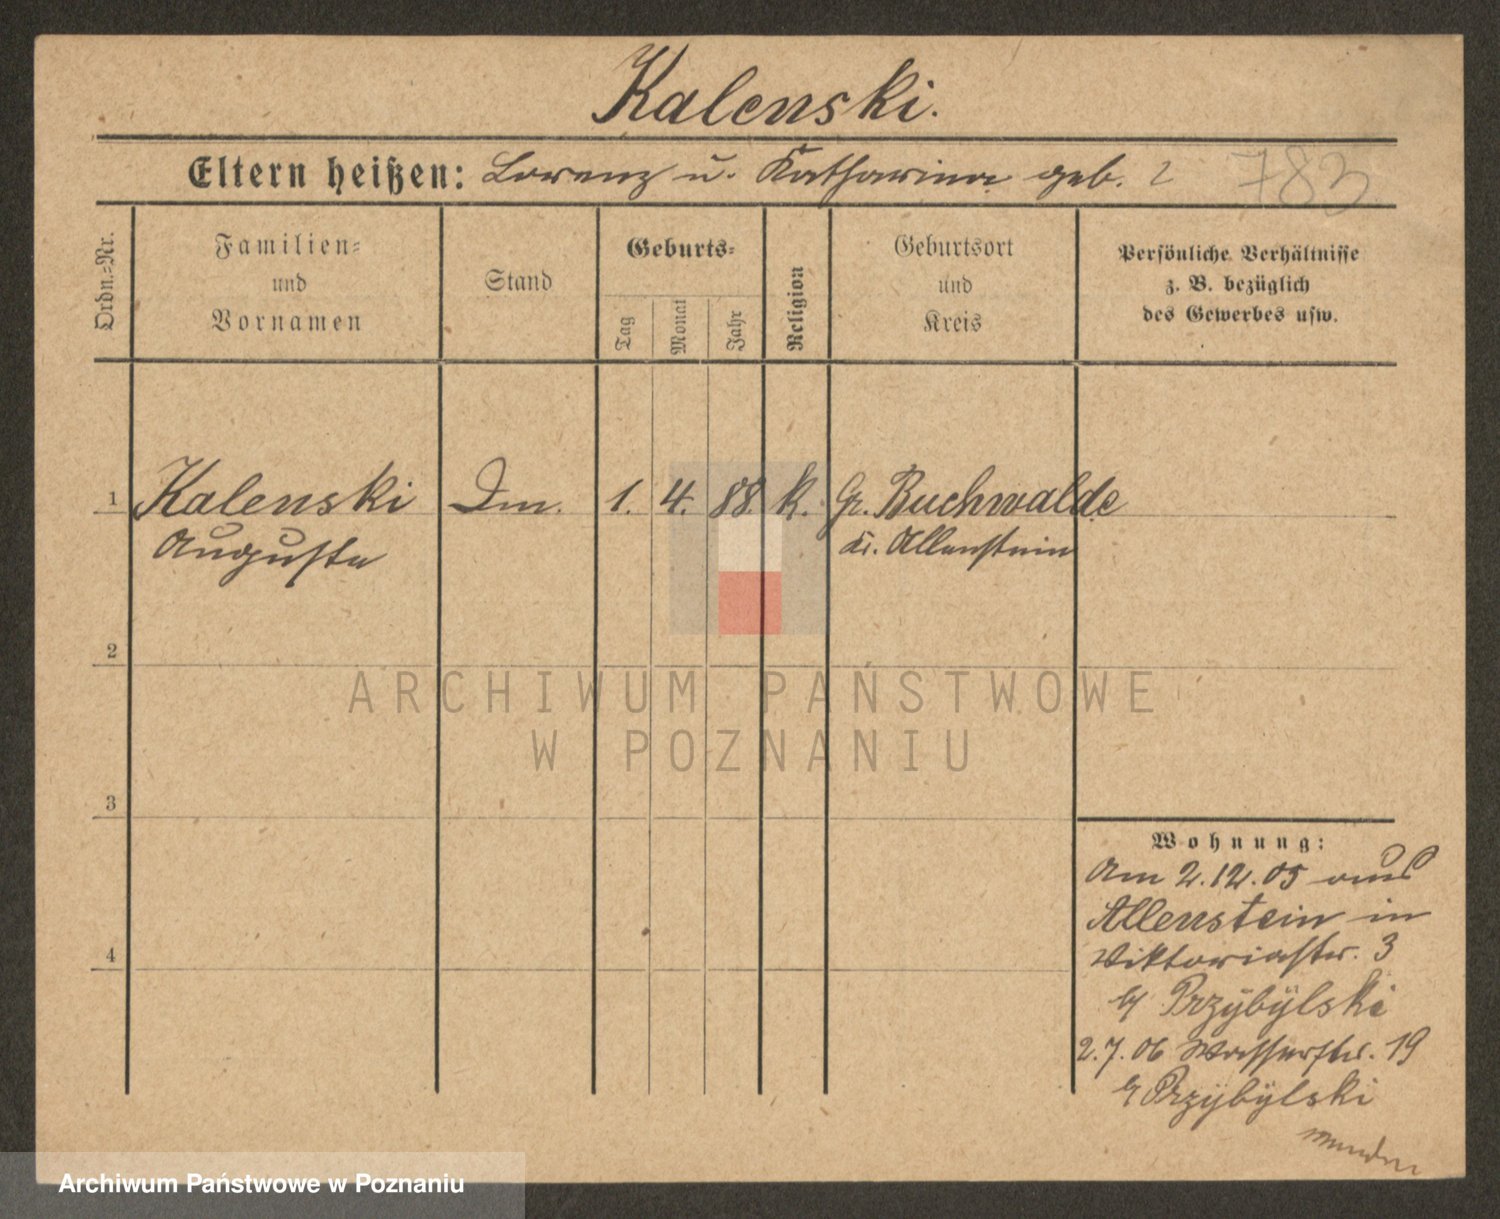 Kalenski.
Eltern heißen: Lorenz u. Katharina geb. ? 783
Ordn.=Nr.
Familien=
und
Vornamen
Stand
Geburts=
Tag
Monat
Jahr
Religion
Geburtsort
und
Kreis
Persönliche Verhältnisse
z. B. bezüglich
des Gewerbes usw.
1 Kalenski 1. 4. 88. k. Gr. Buchwalde
Auguste Kr. Allenstein
2
ARCHIWUM PAŃSTWOWE
W POZNANIU
3
Wohnung:
Am 2.12.05 aus
Allenstein in
4
Viktoriastr. 3
Przÿbÿlski
2.7.06 Wasserstr. 19
Przÿbÿlski
Archiwum Państwowe w Poznaniu